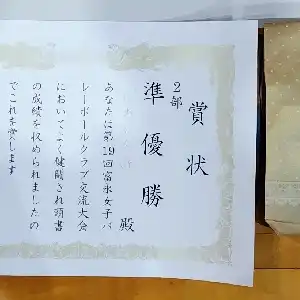 賞状
2部
準優勝
殿
あなたは第19回富永女子バ
レーボールクラブ交流大会
において よく健闘され頭書
の成績を収められましたの
でこれを賞します